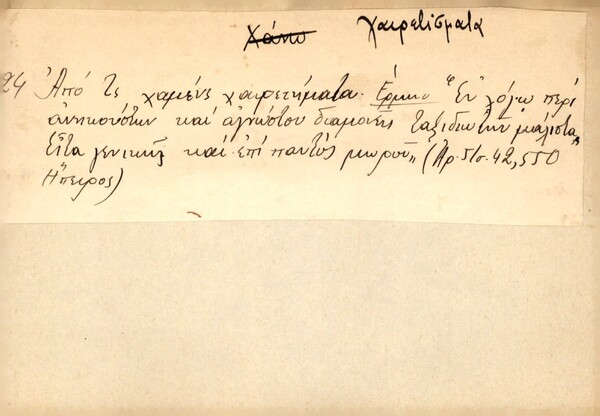 Χάνω χαιρετίσματα
24 Ἀπό τς χαμένς χαιρετήματα. Ἑρμην "Ἐν λόγῳ περί
ἀνηκούστων καί ἀγνώστου διαμονῆς ταξιδιωτῶν μάλιστα,
εἶτα γενικῶς καί ἐπί παντός μωροῦ„ (Ἀρ. 42,550
Ἤπειρος)